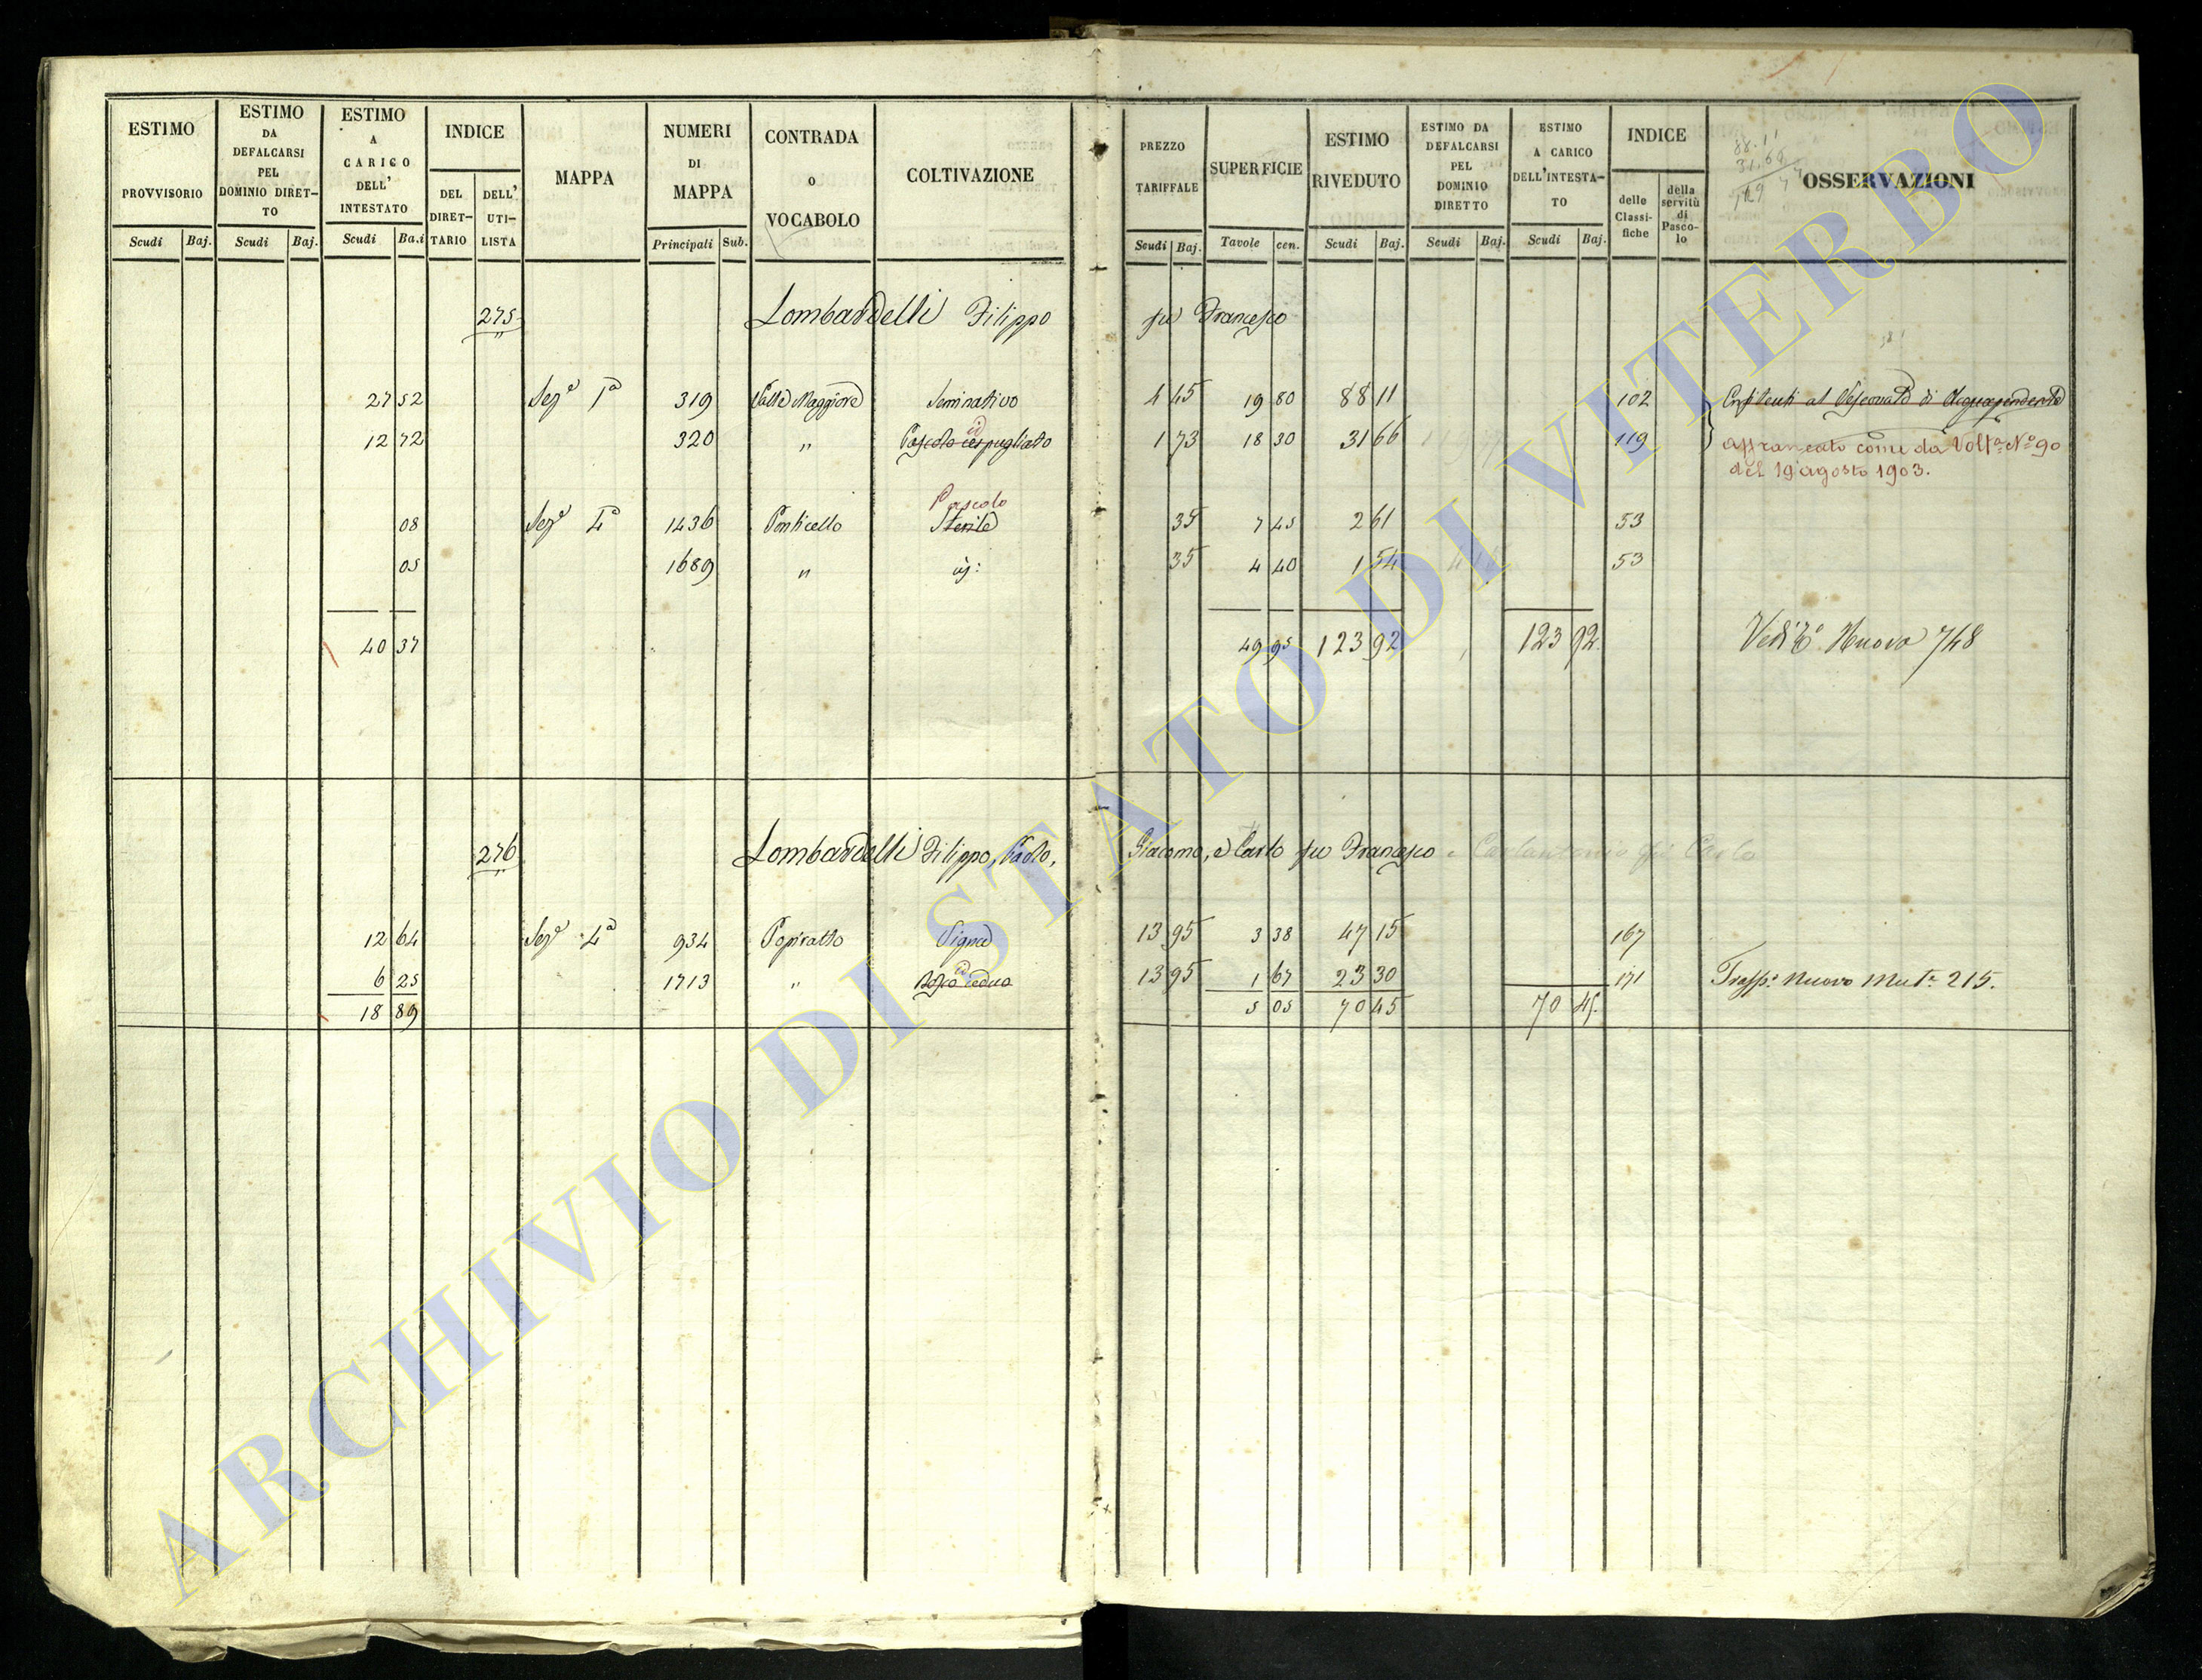 ESTIMO PROVVISORIO
Scudi Baj.
ESTIMO DA DEFALCARSI PEL DOMINIO DIRET-TO
Scudi Baj.
ESTIMO A CARICO DELL' INTESTATO
Scudi Ba.i
INDICE
DEL DIRET-TARIO
DELL' UTI-LISTA
MAPPA
NUMERI DI MAPPA
Principali Sub.
CONTRADA O VOCABOLO
COLTIVAZIONE
PREZZO TARIFFALE
Scudi Baj.
SUPERFICIE
Tavole cen.
ESTIMO RIVEDUTO
Scudi Baj.
ESTIMO DA DEFALCARSI PEL DOMINIO DIRETTO
Scudi Baj.
ESTIMO A CARICO DELL'INTESTA-TO
Scudi Baj.
INDICE
delle Classi-fiche
della servitù di Pasco-lo
88.11
31.66
OSSERVAZIONI
275 Lombardelli Filippo fu Francesco
27 52 Sez.e 1a 319 Valle Maggiore Seminativo 4 45 19 80 88 11 102 Enfiteuti al Vescovato di Acquapendente
12 72 320 " Pascolo cespugliato id 1 73 18 30 31 66 119 affrancato come da Volt.a N.o 90
del 19 agosto 1903.
Pascolo
08 Sez.e 4a 1436 Ponticello Sterile 35 7 45 2 61 53
05 1689 " id: 35 4 40 1 54 53
40 37 49 95 123 92 123 92. Vedi Nuova 748
276 Lombardelli Filippo, Paolo, Giacomo, e Carlo fu Francesco e Carlantonio fu Carlo
12 64 Sez.e 4a 934 Popiratto Vigna 13 95 3 38 47 15 167
6 25 1713 " Bosco ceduo id 13 95 1 67 23 30 171 Trasp.o Nuovo Mut.e 215.
18 89 5 05 70 45 70 45.
ARCHIVIO DI STATO DI VITERBO